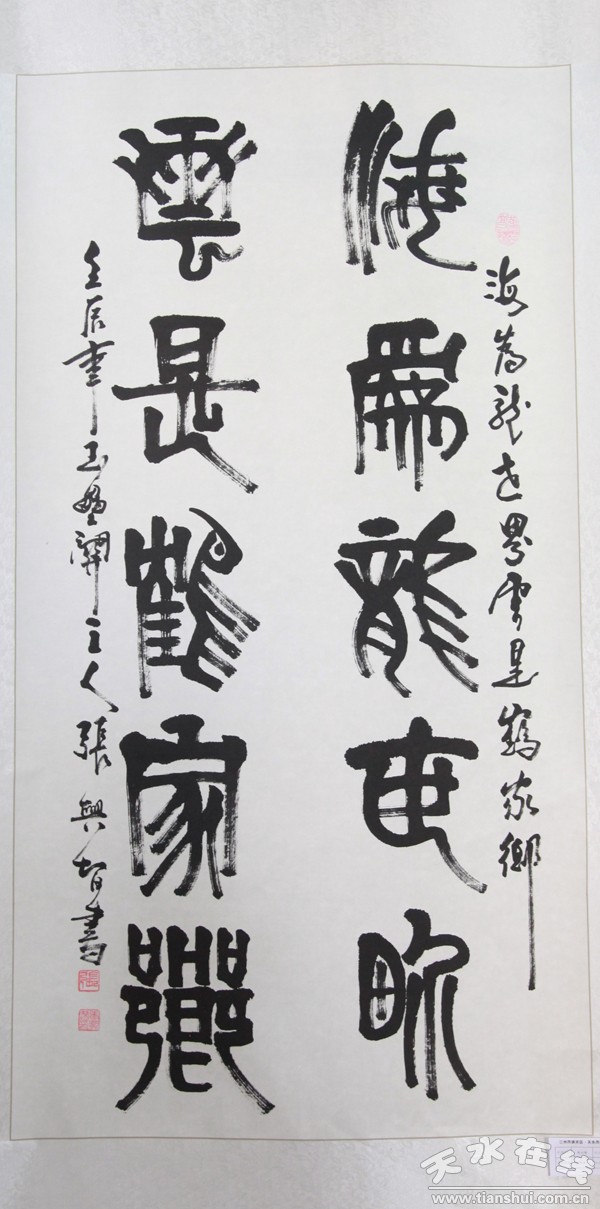 海為龍世界雲是鶴家鄉
海為龍世界
雲是鶴家鄉
壬辰年玉壘關主人張興智書
天水在线
www.tianshui.com.cn